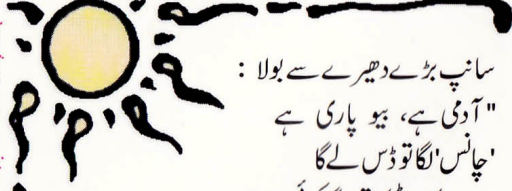 سانپ بڑے دھیرے سے بولا :
"آدمی ہے، بیو پاری ہے
'چانس' لگا تو ڈس لے گا